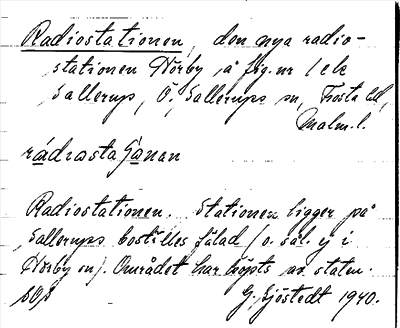 Radiostationen, den nya radio-
stationen Hörby å fig.nr 1 ek
Sallerup, Ö. Sallerups sn, Frosta hd,
Malm.l.
rádiastaʃánan
Radiostationen. Stationen ligger på
Sallerups boställes fälad (o. sål. ej i
Hörby sn). Området har köpts av staten.
G. Sjöstedt 1940.